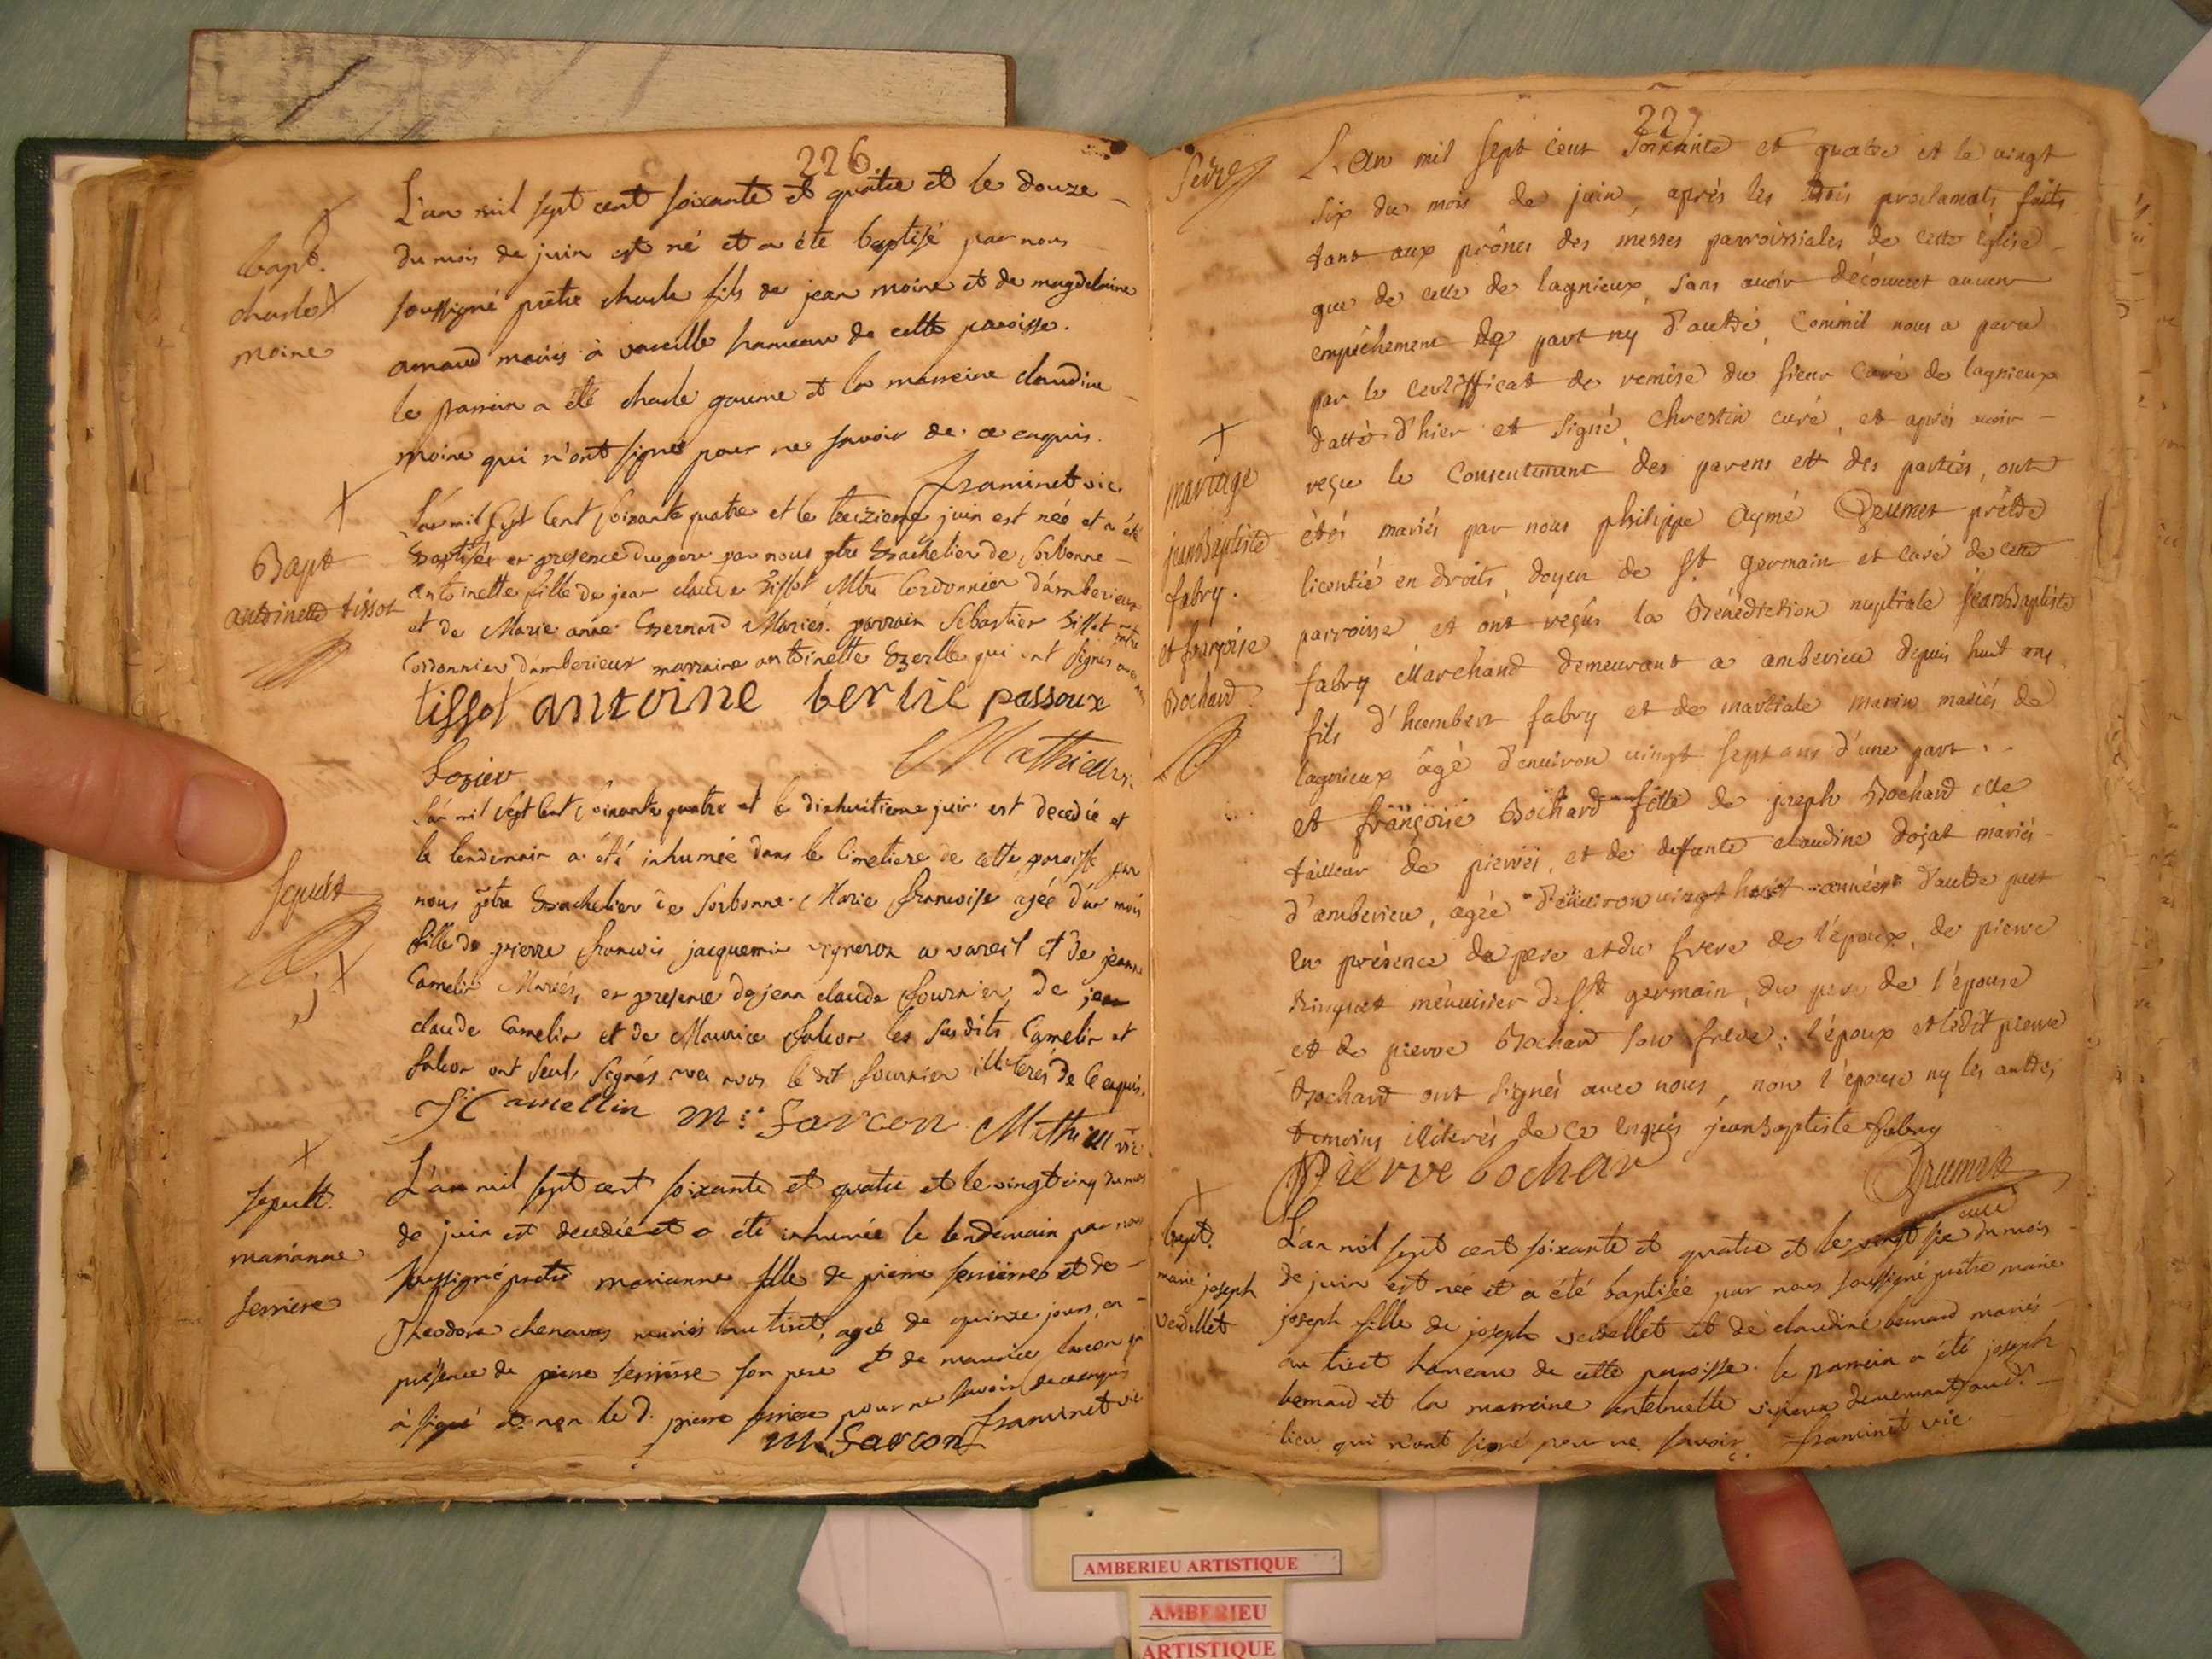 226.
bapt.
charle
moine
L'an mil sept cent soixante et quatre et le douze
du mois de juin est né et a été baptisé par nous
soussigné prêtre charle fils de jean moine et de magdelaine
amand mariés à vareille hameau de cette paroisse.
le parrain a été charle gourne et la marreine claudine
moine qui n'ont signé pour ne savoir de ce enquis.
framinet vic.
Bapt
antoinette tissot
L'an mil sept cent soixante quatre et le treizieme juin est née et a été
Baptisée en presence du pere par nous ptre Bachelier de sorbonne
antoinette fille de jean claude tissot Mtre Cordonnier d'amberieux
et de Marie anne Bernard Mariés. parrain Sebastien tissot mtre
Cordonnier d'amberieux marraine antoinette qui ont signés avec nous
tissot antoine berlie passoux
Mathieu
sozier
sepult
L'an mil sept cent soixante quatre et le dixhuitieme juin est decedée et
le lendemain a été inhumée dans le Cimetiere de cette paroisse par
nous ptre Bachelier de sorbonne Marie francoise agée d'un mois
fille de pierre francois jacquemin vigneron a vareil et de jeanne
Camelin Mariés, en presence de jean claude fournier, de jean
claude Camelin et de Maurice falcon les susdits Camelin et
falcon ont seuls signés avec nous le dit fournier illiterés de ce enquis.
JC amellin m: farcon Mathieu vic
sepult.
marianne
ferriere
L'an mil sept cent soixante et quatre et le vingt cinq du mois
de juin est decedée et a été inhumée le lendemain par nous
soussigné pretre marianne fille de pierre ferriere et de
Theodora chenavas mariés au tiret, agée de quinze jours, en
présence de pierre ferriere son pere et de maurice farcon qui
a signé et non le d. pierre ferriere pour ne savoir de ce enquis
m: farcon framinet vic
227
L'an mil sept cent soixante et quatre et le vingt
six du mois de juin, après les trois proclamats faits
tant aux prônes des messes parroissiales de cette église
que de celle de lagnieux, sans avoir découvert aucun
empêchement de part ny d'autre, Commil nous a paru
par le certifficat de remise du sieur Curé de lagnieux
datté d'hier et signé, chrestin curé, et après avoir
mariage
jeanbaptiste
fabry.
et françoise
Bochard
reçu le Consentement des parens et des parties, ont
étés mariés par nous philippe aymé Grumet prêtre
licentié en droits, doyen de st germain et curé de cette
parroisse, et ont reçus la Bénédiction nuptiale jeanbaptiste
fabry Marchand demeurant a amberieu depuis huit ans,
fils d'humbert fabry et de martiale marin mariés de
lagnieux âgé d'environ vingt sept ans d'une part.
et françoise Bochard fille de joseph Bochard
tailleur de pierres, et de deffunte claudine dojat mariés
d'amberieu, agée d'environ vingt huit années d'autre part
En présence du pere et du frere de l'époux, de pierre
menuisier de st germain, du pere de l'épouse
et de pierre Bochard son frere; l'époux et ledit pierre
Bochard ont signés avec nous, non l'épouse ny les autres
temoins illiterés de ce enquis jeanbaptiste fabry
pierre bochar
Grumet
curé
bapt.
marie joseph
verdellet
L'an mil sept cent soixante et quatre et le vingt six du mois
de juin est née et a été baptisée par nous soussigné pretre marie
joseph fille de joseph verdellet et de claudine bernard mariés
au tiret hameau de cette paroisse. le parrain a été joseph
bernard et la marreine demeurant aud.
lieu qui n'ont signé pour ne savoir. framinet vic
AMBERIEU ARTISTIQUE
AMBERIEU
ARTISTIQUE